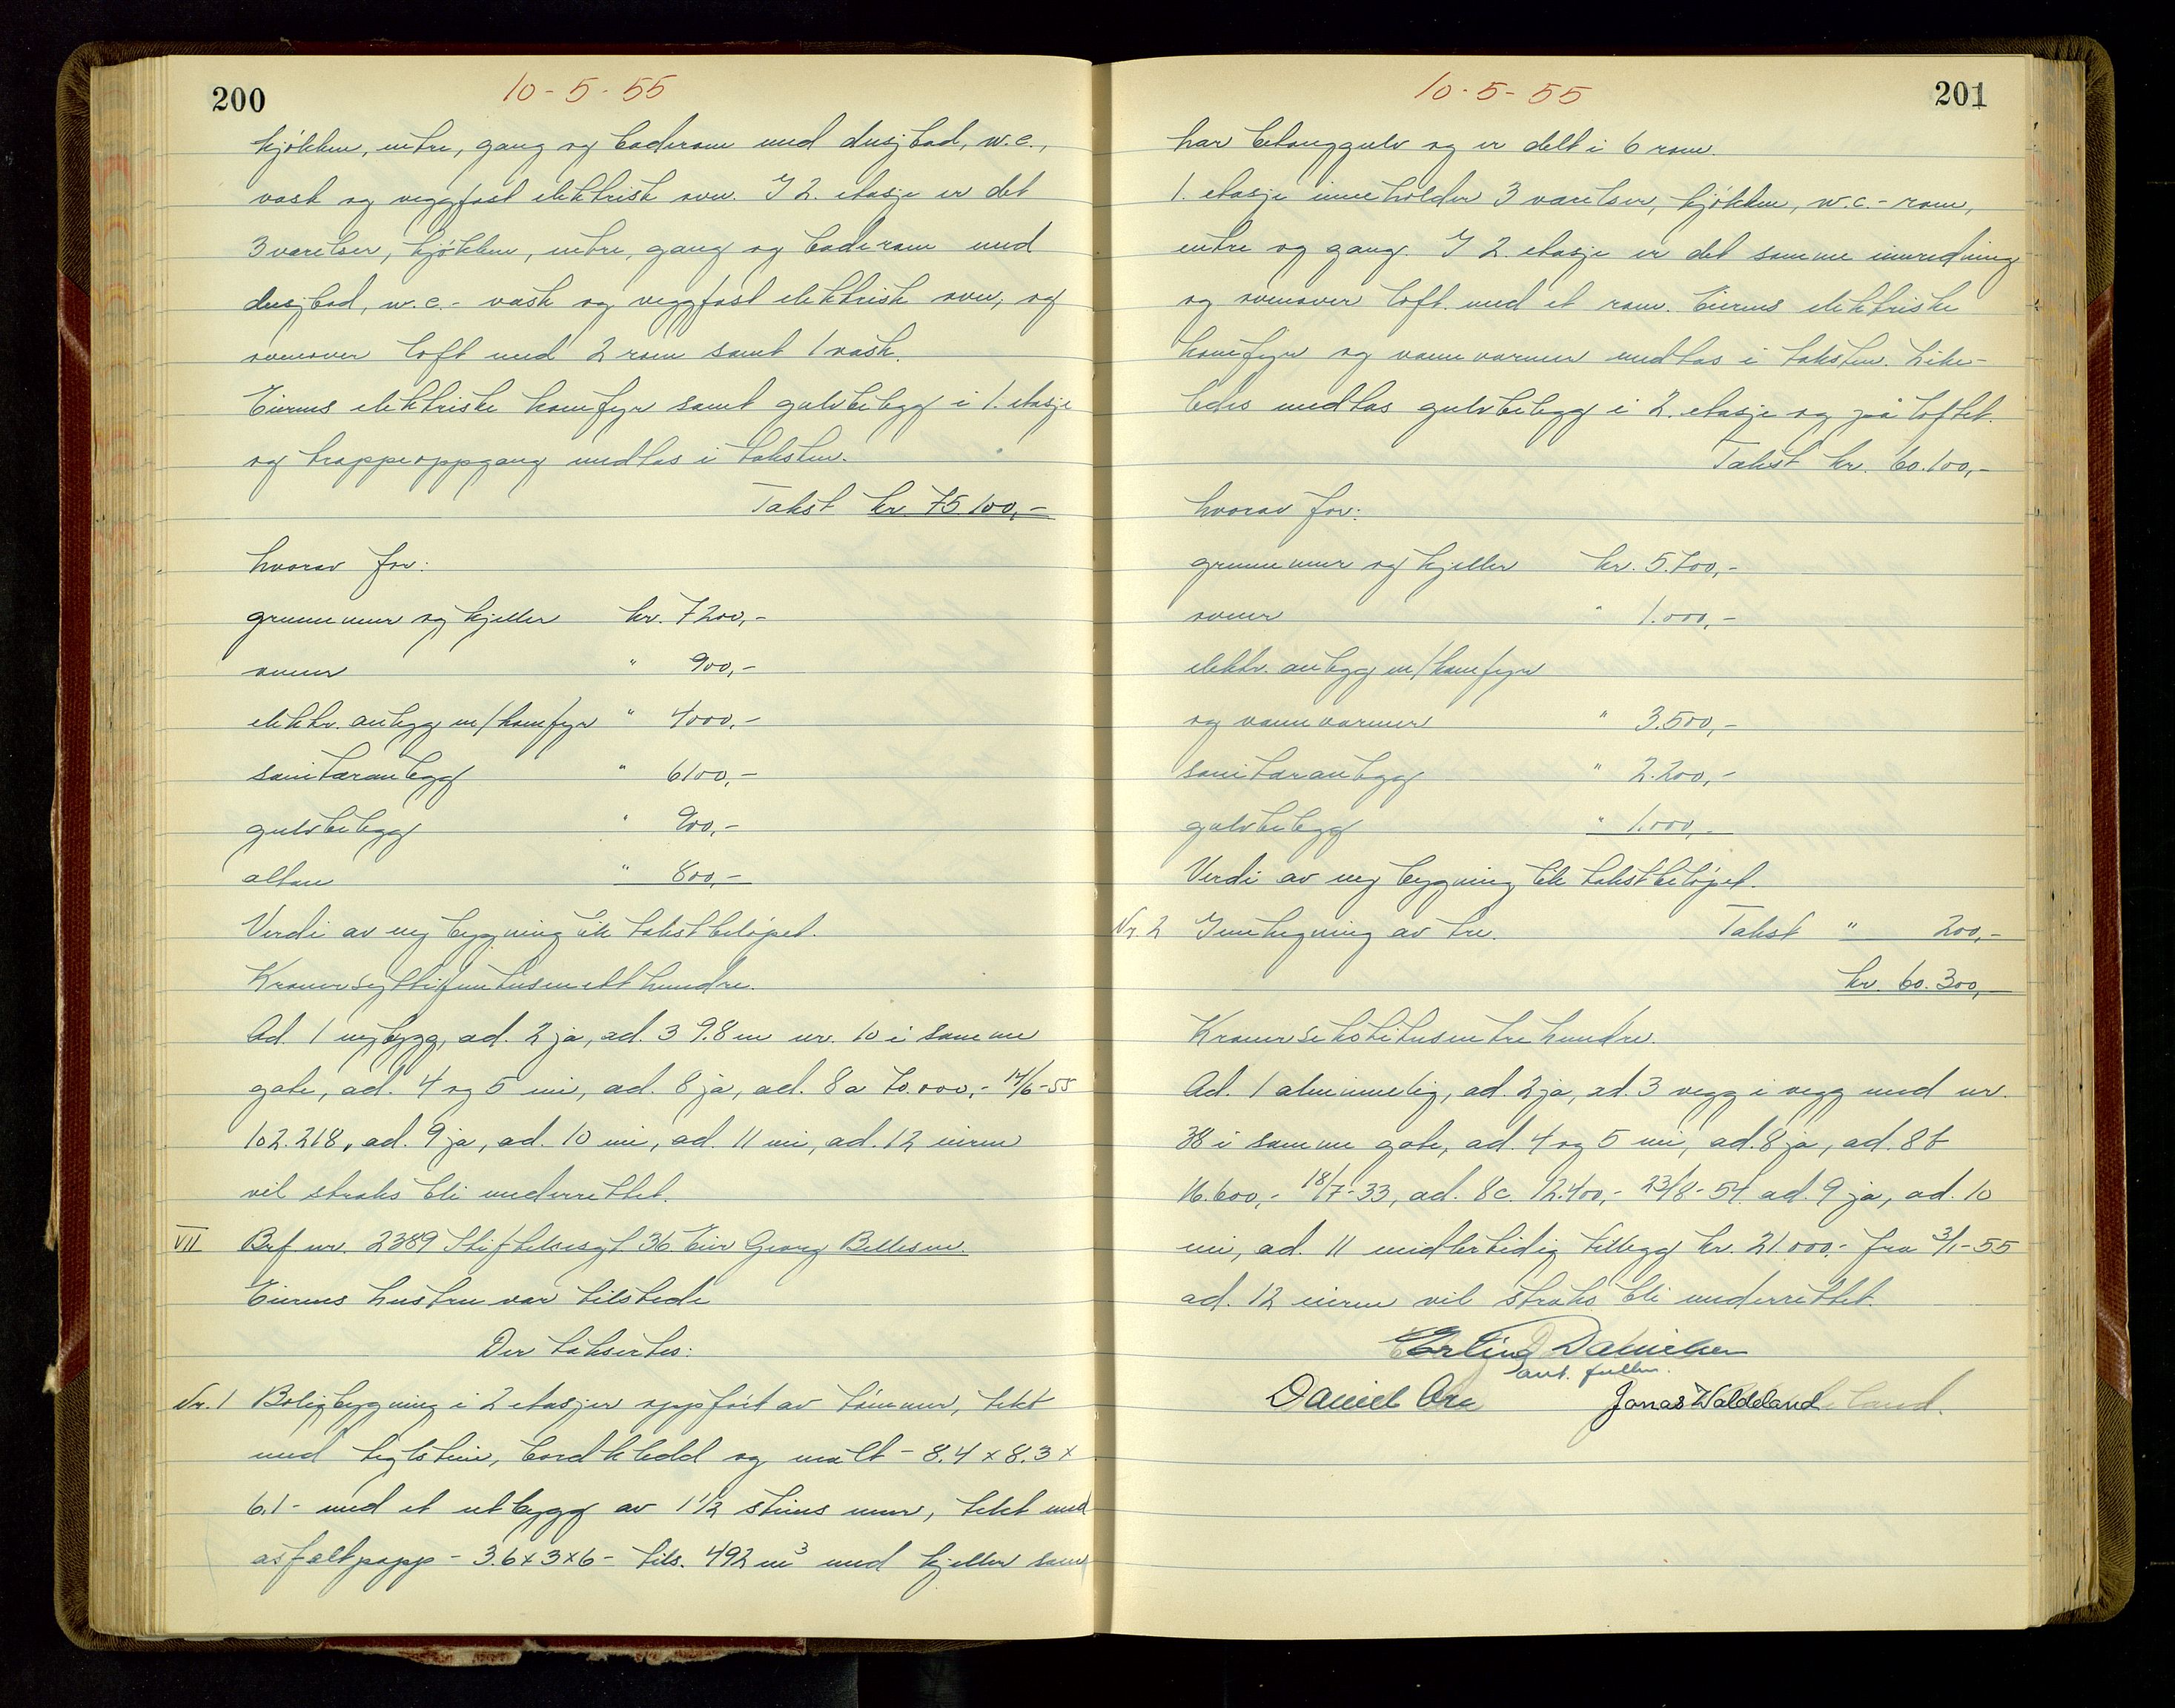 200
10-5-55
kjøkken, entre, gang og baderom med dusjbad, w.c.,
vask og veggfast elektrisk ovn. I 2. etasje er det
3 værelser, kjøkken, entre, gang og baderom med
dusjbad, w.c.- vask og veggfast elektrisk ovn, og
ovenover loft med 2 rom samt 1 vask.
Eierens elektriske komfyr samt gulvbelegg i 1. etasje
og trappeoppgang medtas i taksten.
Takst kr. 75.100,-
hvorav for:
grunnmur og kjeller kr. 7200,-
ovner " 900,-
elektr. anlegg m/komfyr " 4000,-
sanitæranlegg " 6100,-
gulvbelegg " 900,-
altan " 800,-
Verdi av ny bygning lik takstbeløpet.
Kroner syttifemtusenetthundre.
Ad. 1 nybygg, ad. 2 ja, ad. 3 9.8 m nr. 10 i samme
gate, ad. 4 og 5 nei, ad. 8 ja, ad. 8 a 70.000,- 14/6-55
102.218, ad. 9 ja, ad. 10 nei, ad. 11 nei, ad. 12 eieren
vil straks bli underrettet.
VII Brf nr. 2389 Stiftelsesgt 36 Eier Georg Bellesen.
Eierens hustru var tilstede
Der takseres:
Nr. 1 Boligbygning i 2 etasjer oppført av tømmer, tekt
med teglstein, bordkledd og malt - 8.4 x 8.3 x
6.1 - med et utbygg av 1 1/2 steins mur, tekt med
asfaltpapp - 3.6 x 3 x 6 - tils. 492 m³ med kjeller som
201
10-5-55
har betonggulv og er delt i 6 rom.
1. etasje inneholder 3 værelser, kjøkken, w.c.-rom,
entre og gang. I 2. etasje er det samme innredning
og ovenover loft med et rom. Eierens elektriske
komfyr og vannvarmer medtas i taksten. Like-
ledes medtas gulvbelegg i 2. etasje og på loftet.
Takst kr. 60.100,-
hvorav for:
grunnmur og kjeller kr. 5.700,-
ovner " 1.000,-
elektr. anlegg m/komfyr
og vannvarmer " 3.500,-
sanitæranlegg " 2.200,-
gulvbelegg " 1.000,-
Verdi av ny bygning lik takstbeløpet.
Nr. 2 Innhegning av tre. Takst " 200,-
kr. 60.300,-
Kroner sekstitusentrehundre.
Ad. 1 alminnelig, ad. 2 ja, ad. 3 vegg i vegg med nr.
38 i samme gate, ad. 4 og 5 nei, ad. 8 ja, ad. 8 b
16.600,- 18/7-33, ad. 8c. 12.400,- 23/8-54 ad. 9 ja, ad. 10
nei, ad. 11 midlertidig tillegg kr. 21.000,- fra 3/1-55
ad. 12 eieren vil straks bli underrettet.
Erling Danielsen
aut. fullm.
Daniel Jonas Waldeland